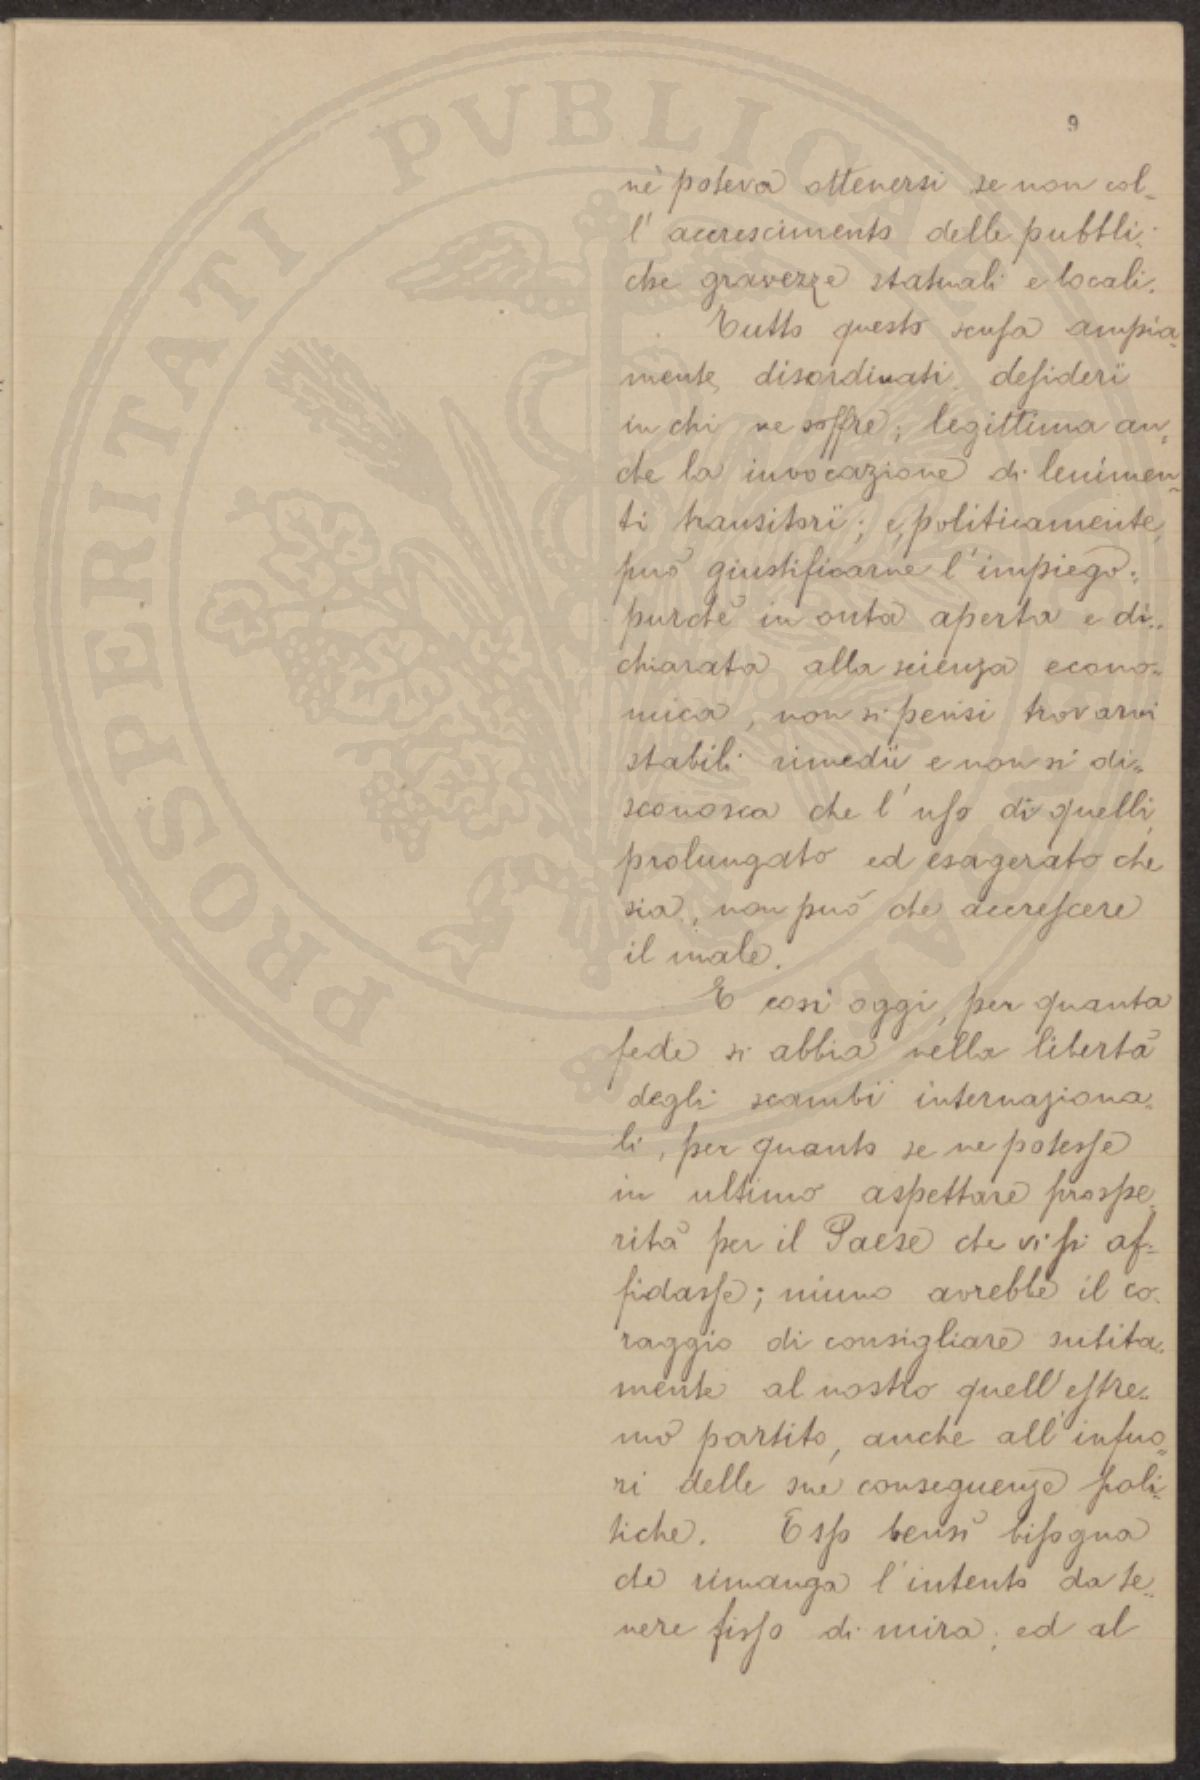 9
nè poteva ottenersi se non col-
l'accrescimento delle pubbli-
che gravezze statuali e locali.
Tutto questo scusa ampia-
mente, disordinati desiderii
in chi ne soffre; legittima an-
che la invocazione di lenimen-
ti transitorii; e, politicamente,
può giustificarne l'impiego:
purchè in onta aperta e di-
chiarata alla scienza econo-
mica, non si pensi trovarvi
stabili rimedii e non si di-
sconosca che l'uso di quelli,
prolungato ed esagerato che
sia, non può che accrescere
il male.
E così oggi, per quanta
fede si abbia nella libertà
degli scambii internaziona-
li, per quanto se ne potesse
in ultimo aspettare prospe-
rità per il Paese che vi si af-
fidasse; niuno avrebbe il co-
raggio di consigliare subita-
mente al nostro quell'estre-
mo partito, anche all'infuo-
ri delle sue conseguenze poli-
tiche. Esso bensì bisogna
che rimanga l'intento da te-
nere fisso di mira, ed al
PROSPERITATI PVBLICAE